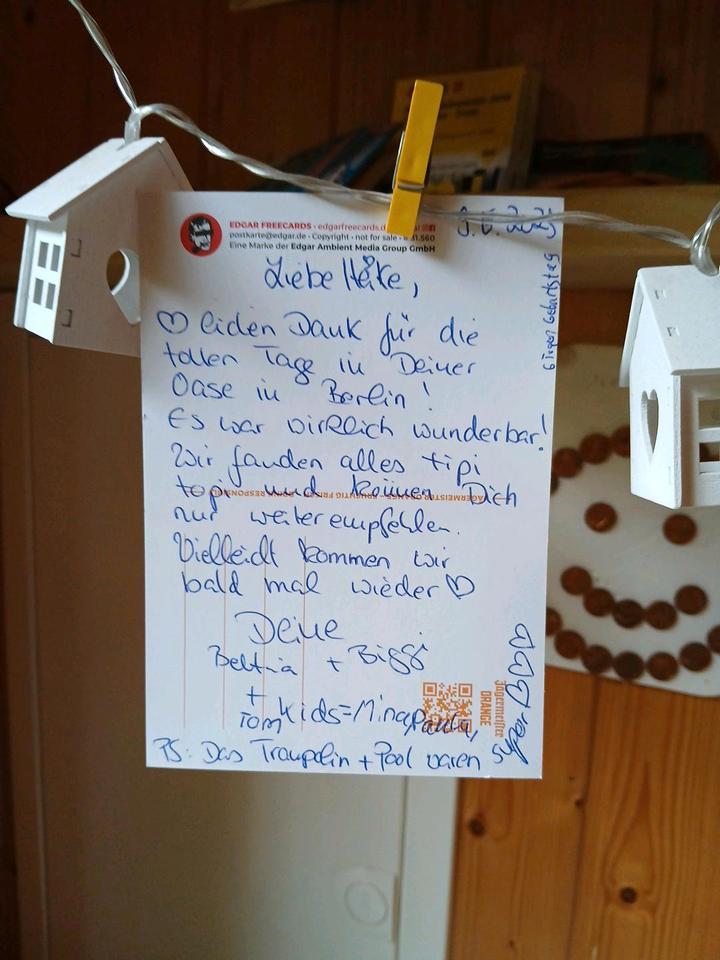 EDGAR FREECARDS · edgarfreecards.d
postkarte@edgar.de · Copyright · not for sale · 31.560
Eine Marke der Edgar Ambient Media Group GmbH
6 Tage Geburtstag
Liebe Heike,
♡ lichen Dank für die
tollen Tage in Deiner
Oase in Berlin!
Es war wirklich wunderbar!
Wir fanden alles tipi
topi und können Dich
nur weiterempfehlen.
Vielleicht kommen wir
bald mal wieder ♡
Deine
Bettina + Biggi
+
Tom Kids = Mina, Paula,
PS: Das Trampolin + Pool waren
super ♡♡♡
Jägermeister
ORANGE